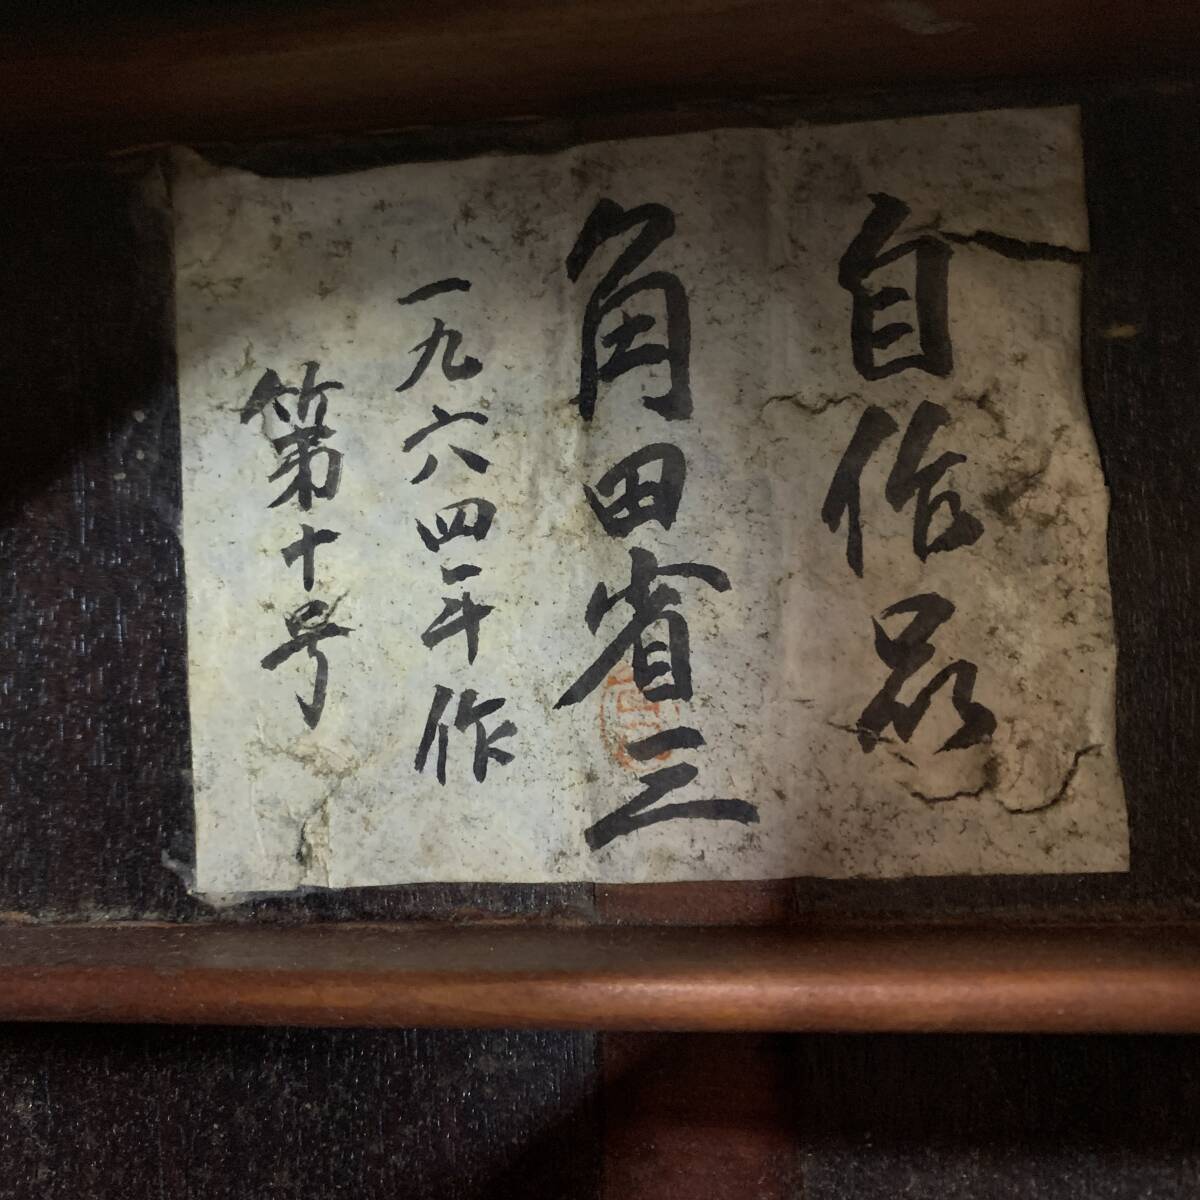 自作品
角田省三
一九六四年作
第十号